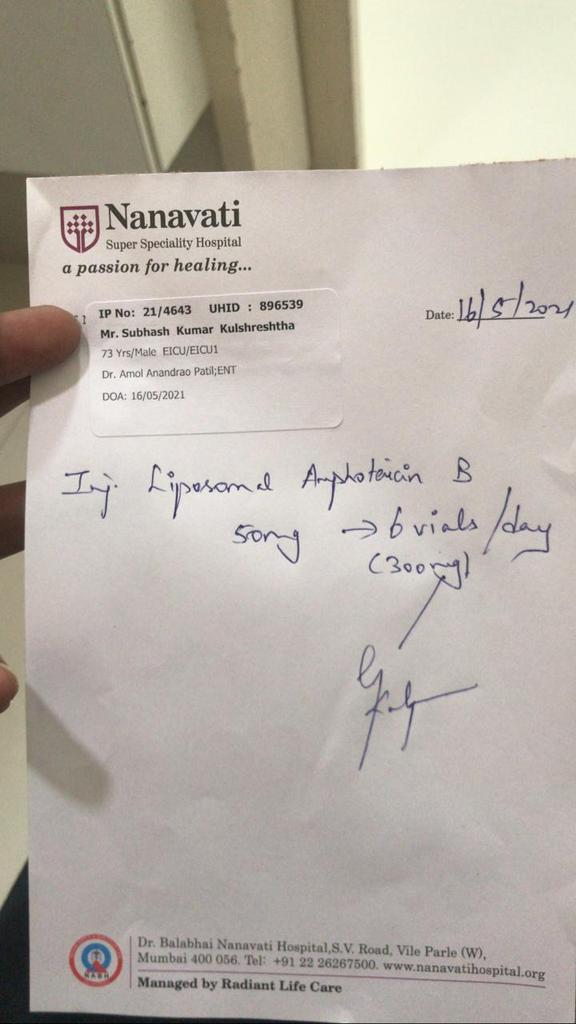 Nanavati
Super Speciality Hospital
a passion for healing...
IP No: 21/4643 UHID : 896539
Mr. Subhash Kumar Kulshreshtha
73 Yrs/Male EICU/EICU1
Dr. Amol Anandrao Patil;ENT
DOA: 16/05/2021
Date: 16/5/2021
Inj. Liposomal Amphotericin B
50mg → 6 vials/day
(300mg)
NABH
Dr. Balabhai Nanavati Hospital,S.V. Road, Vile Parle (W),
Mumbai 400 056. Tel: +91 22 26267500. www.nanavatihospital.org
Managed by Radiant Life Care